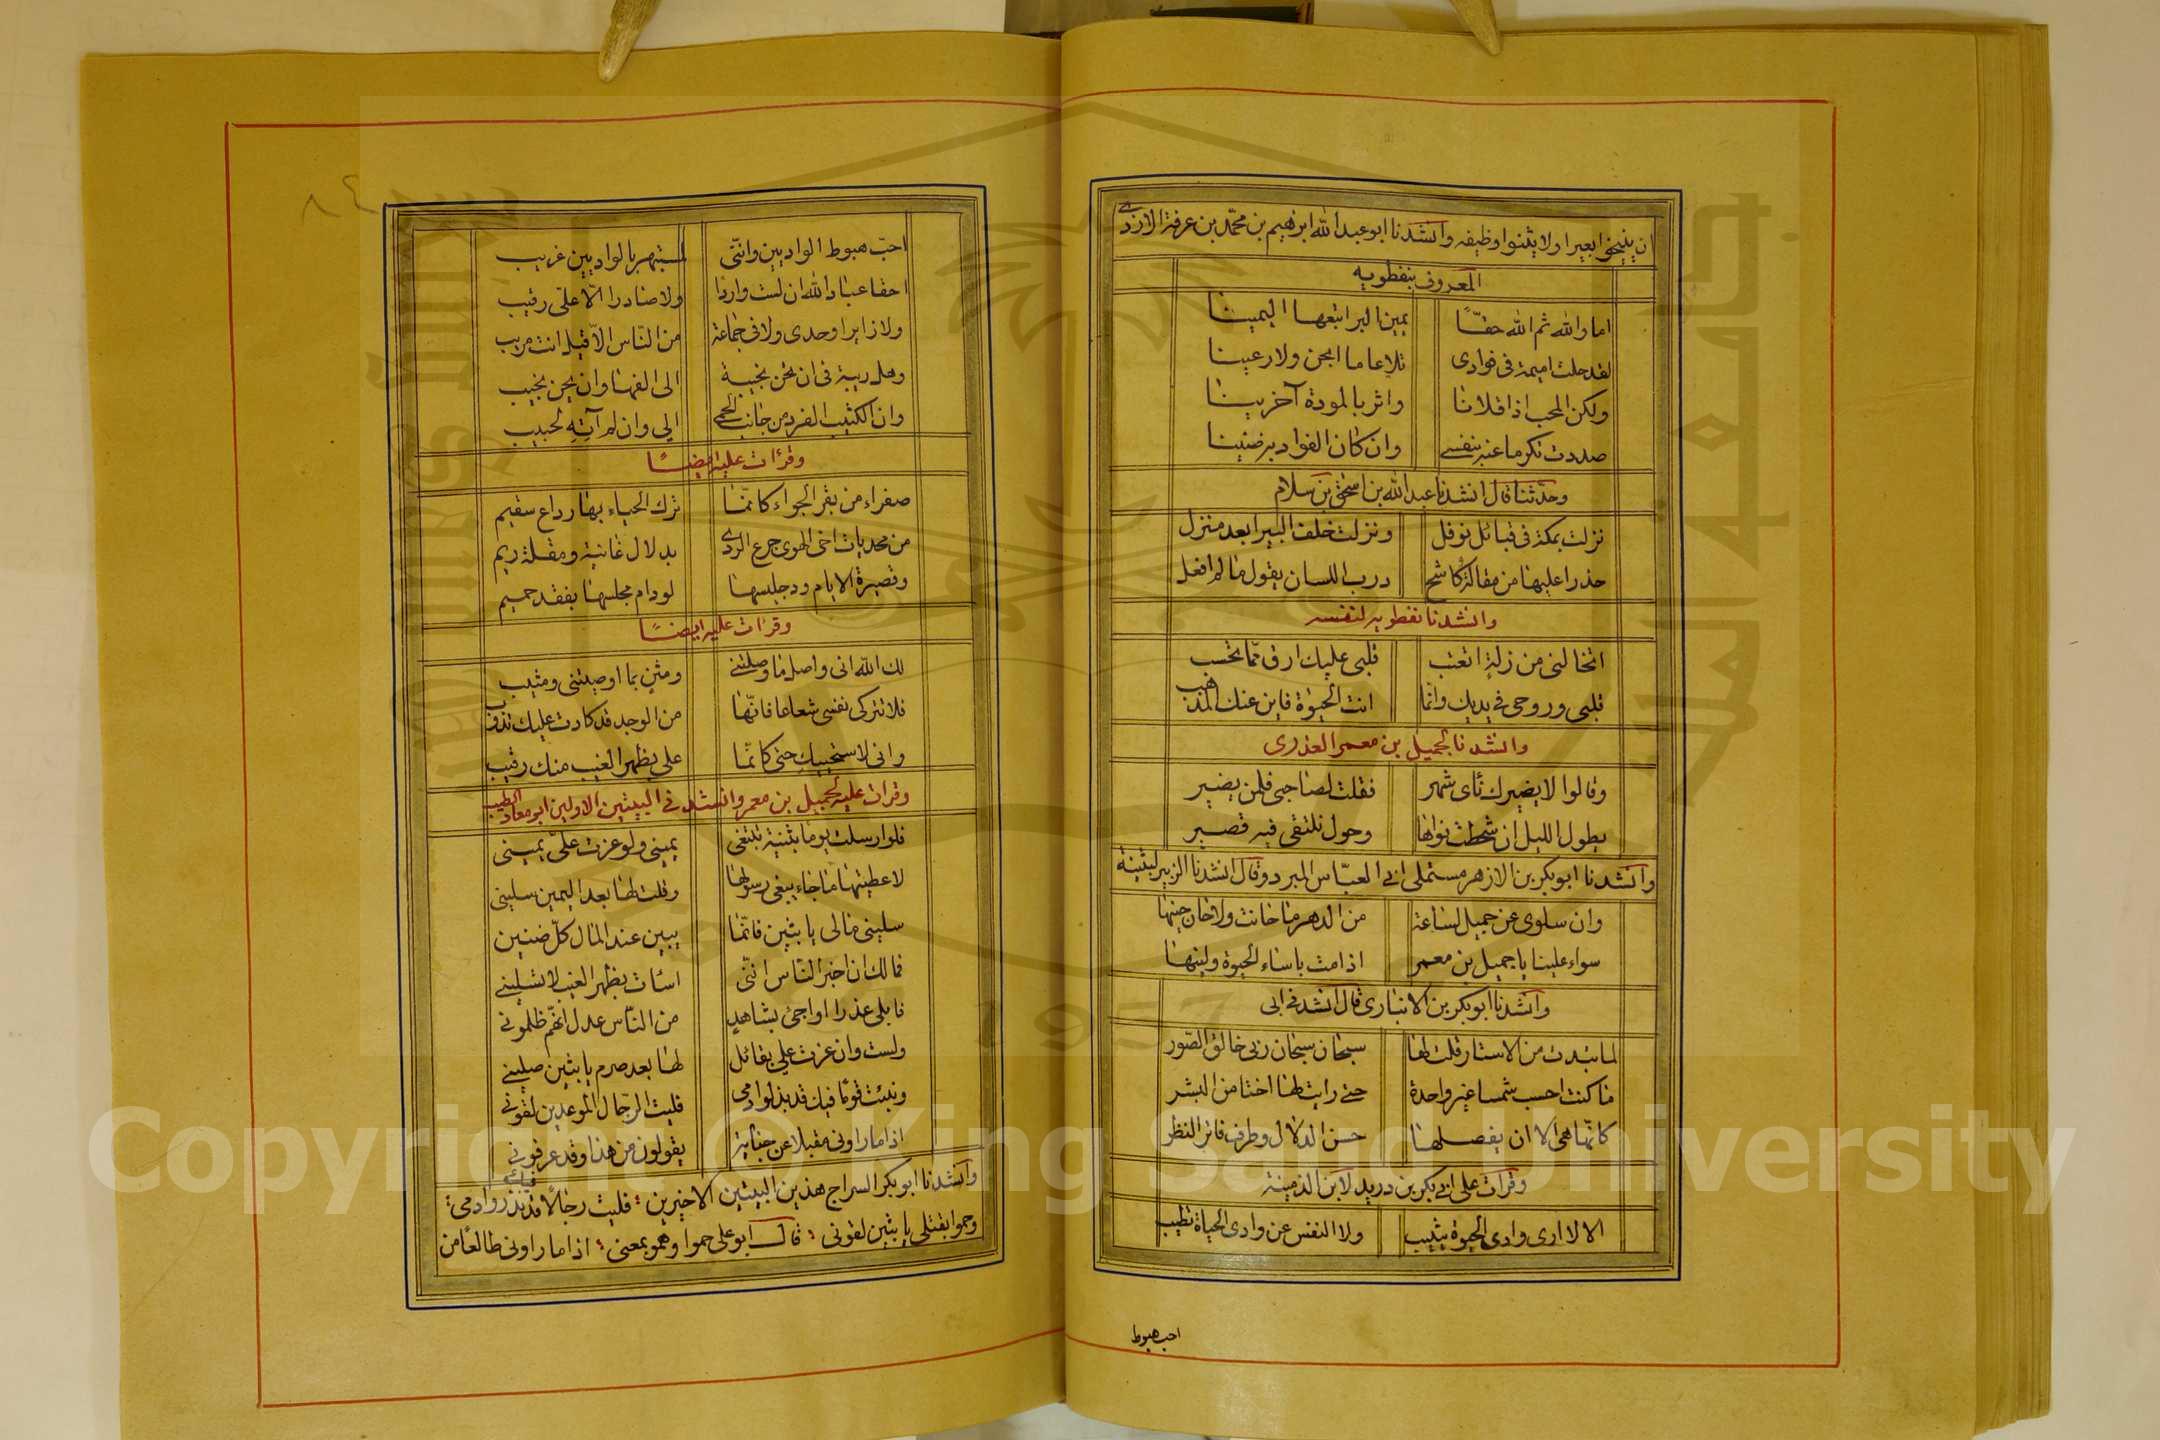 ان ينيخوا بعيرا ولا يثنوا وظيفه وانشدنا ابو عبد الله ابرهيم بن محمد بن عرفة الازدى
المعروف بنفطويه
اما والله ثم الله حقّا يمين البر اتبعها اليمينا
لقد حلت اميمة فى فوادى تلاعا ما ابحن ولا رعينا
ولكن المحب اذا قلانا واثر بالمودة آخرينا
صددت تكرما عنه بنفسى وان كان الفواد به ضنينا
وحدّثنا قال انشدنا عبد الله بن اسحق بن سلام
نزلت بمكة فى قبائل نوفل ونزلت خلف البير ابعد منزل
حذرا عليها من مقالة كاشح درب اللسان يقول ما لم افعل
وانشدنا نفطويه لنفسه
اتخالنى من زلة اتعتب قلبى عليك ارق ممّا تحسب
قلبى وروحى فى يديك وانما انت الحيوة فاين عنك المذهب
وانشدنا لجميل بن معمر العذرى
وقالوا لا يضيرك نأى شهر فقلت لصاحبى فلمن يضير
يطول الليل ان شحطت نواها وحول نلتقى فيه قصير
وانشدنا ابو بكر بن الازهر مستملى ابى العبّاس المبرد وقال انشدنا الزبير لبثينة
وان سلوى عن جميل لساعة من الدهر ما حانت ولا حان حينها
سواء علينا يا جميل بن معمر اذا مت باساء الحيوة ولينها
وانشدنا ابو بكر بن الانبارى قال انشدنى ابى
لما تبدت من الاستار قلت لها سبحان سبحان ربى خالق الصّور
ما كنت احسب شمسا غير واحدة حتى رايت لها اختا من البشر
كانّها هى الا ان يفصلها حسن الدلال وطرف فاتر النظر
وقرات على ابى بكر بن دريد لابن الدمينة
الا لا ارى وادى الحيوة يثيب ولا النفس عن وادى الحياة تطيب
احب هبوط
٨٤
احبّ هبوط الواديين وانّنى لمشتهر بالواديين غريب
احقا عباد الله ان لست واردا ولا صادرا الّا علىّ رقيب
ولا زايرا وحدى ولا فى جماعة من النّاس الّا قيل انت مريب
وهل ريبة فى ان تحن نجيبة الى الفها وان يحن نجيب
وان الكثيب الفرد من جانب الحمى الى وان لم آتِهِ لحبيب
وقرأت عليه ايضًا
صفراء من بقر الجواء كانّما ترك الحياء بها رداع سقيم
من محذيات اخى الهوى جرع الردى بدلال غانية ومقلة ريم
وقصيرة الايام ود جليسها لو دام مجلسها بفقد حميم
وقرأت عليه ايضًا
لك الله انى واصل ما وصلتنى ومثنٍ بما اوصيتنى ومثيب
فلا تتركى نفسى شعاعا فانّها من الوجد قد كادت عليك تذوب
وانى لاستحييكِ حتى كانّما على بظهر الغيب منك رقيب
وقرات عليه لجميل بن معمر وانشد فى البيتين الاولين ابو معاذ الطيب
فلو ارسلت يوما بثينة تبتغى يمينى ولو عزت علىّ يمينى
لاعطيتها ما جاء يبغى رسولها وقلت لها بعد اليمين سلينى
سلينى مالى يا بثين فانّما يبين عند المال كلّ ضنين
فمالك ان اخبر النّاس انّنى اسات بظهر الغيب لا تسلينى
فابلى عذرا او اجئ بشاهدٍ من النّاس عدل انّهم ظلمونى
ولست وان عزت على بقائل لها بعد صرم يا بثين صلينى
ونبئت قومًا فيك قد نذروا دمى فليت الرّجال الموعدين لقونى
اذا ما راونى مقبلا عن جنابة يقولون من هذا وقد عرفونى
وانشدنا ابو بكر السراج هذين البيتين الاخيرين فليت رجالًا فيك قد نذروا دمى
وهموا بقتلى يا بثين لقونى قال ابو على حموا وهمو بمعنى اذا ما راونى طالعًا من